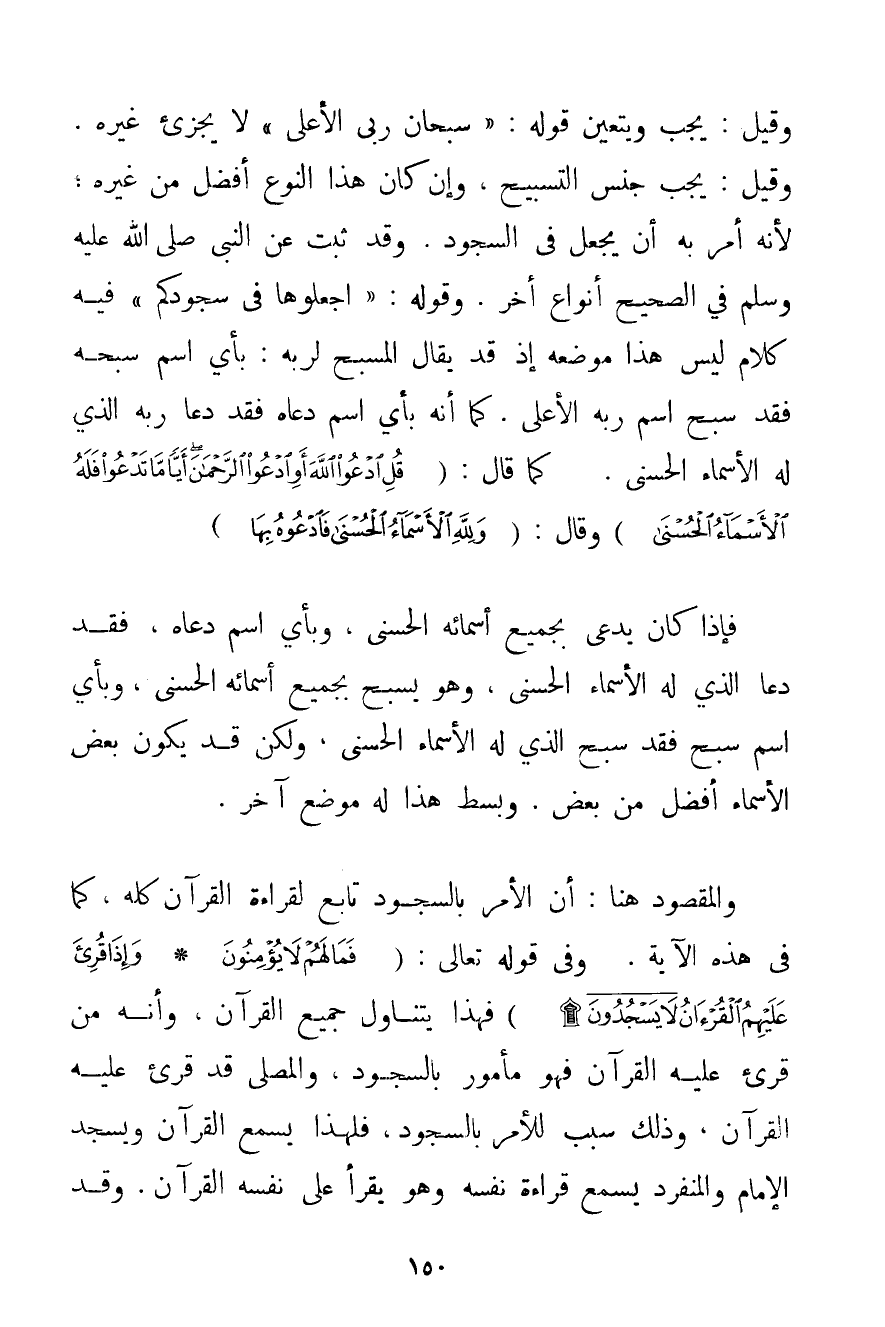 وقيل : يجب ويتعين قوله : « سبحان ربى الأعلى » لا يجزئ غيره .
وقيل : يجب جنس التسبيح ، وإن كان هذا النوع أفضل من غيره ؛
لأنه أمر به أن يجعل فى السجود . وقد ثبت عن النبى صلى الله عليه
وسلم في الصحيح أنواع أخر . وقوله : « اجعلوها فى سجودكم » فيه
كلام ليس هذا موضعه إذ قد يقال المسبح لربه : بأي اسم سبحه
فقد سبح اسم ربه الأعلى . كما أنه بأي اسم دعاه فقد دعا ربه الذي
له الأسماء الحسنى . كما قال : ( قُلِ ٱدْعُوا۟ ٱللَّهَ أَوِ ٱدْعُوا۟ ٱلرَّحْمَٰنَ ۖ أَيًّا مَّا تَدْعُوا۟ فَلَهُ
ٱلْأَسْمَآءُ ٱلْحُسْنَىٰ ) وقال : ( وَلِلَّهِ ٱلْأَسْمَآءُ ٱلْحُسْنَىٰ فَٱدْعُوهُ بِهَا )
فإذا كان يدعى بجميع أسمائه الحسنى ، وبأي اسم دعاه ، فقد
دعا الذي له الأسماء الحسنى ، وهو يسبح بجميع أسمائه الحسنى ، وبأي
اسم سبح فقد سبح الذي له الأسماء الحسنى ، ولكن قد يكون بعض
الأسماء أفضل من بعض . وبسط هذا له موضع آخر .
والمقصود هنا : أن الأمر بالسجود تابع لقراءة القرآن كله ، كما
فى هذه الآية . وفى قوله تعالى : ( فَمَا لَهُمْ لَا يُؤْمِنُونَ * وَإِذَا قُرِئَ
عَلَيْهِمُ ٱلْقُرْءَانُ لَا يَسْجُدُونَ ۩ ) فهذا يتناول جميع القرآن ، وأنه من
قرئ عليه القرآن فهو مأمور بالسجود ، والمصلى قد قرئ عليه
القرآن ، وذلك سبب للأمر بالسجود ، فلهذا يسمع القرآن ويسجد
الإمام والمنفرد يسمع قراءة نفسه وهو يقرأ على نفسه القرآن . وقد
١٥٠